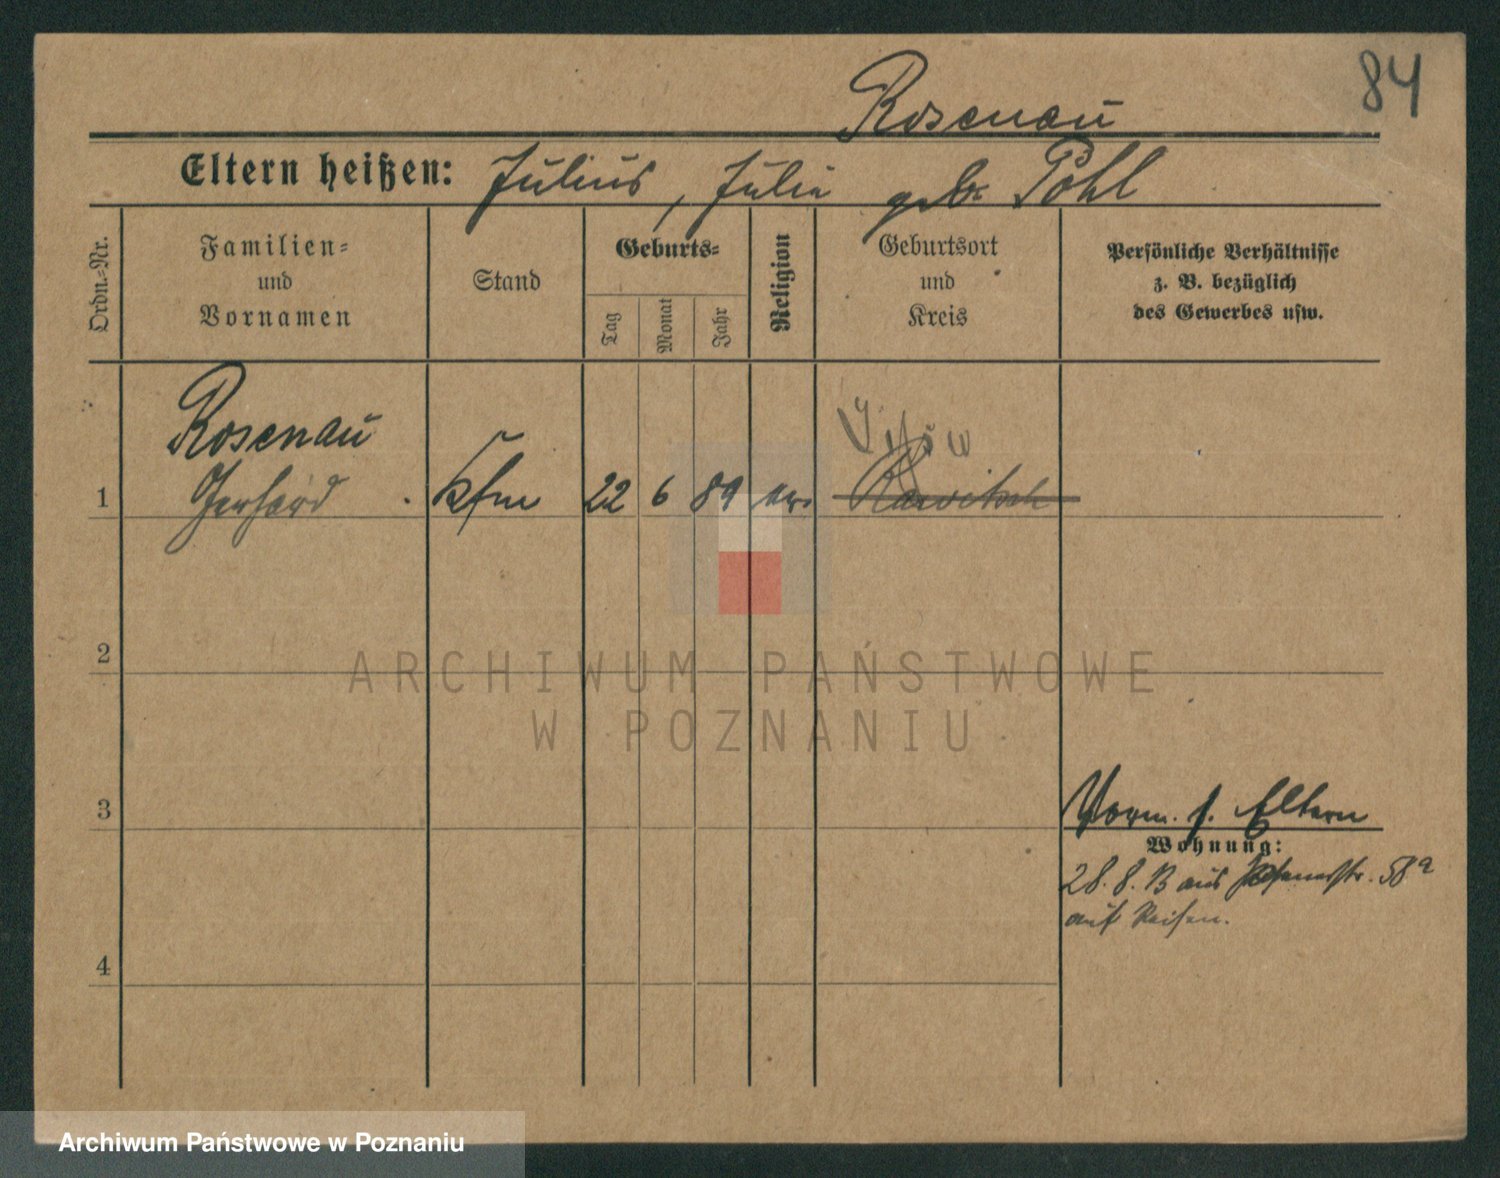 84
Rosenau
Eltern heißen: Julius, Julie geb. Pohl
Ordn.=Nr.
Familien=
und
Vornamen
Stand
Geburts=
Tag
Monat
Jahr
Religion
Geburtsort
und
Kreis
Persönliche Verhältnisse
z. B. bezüglich
des Gewerbes usw.
Rosenau
1 Gerhard Kfm 22 6 89 Rawitsch
2
ARCHIWUM PAŃSTWOWE
W POZNANIU
3 Vorm. s. Eltern
Wohnung:
28. 8. B aus 58a
auf Reisen.
4
Archiwum Państwowe w Poznaniu